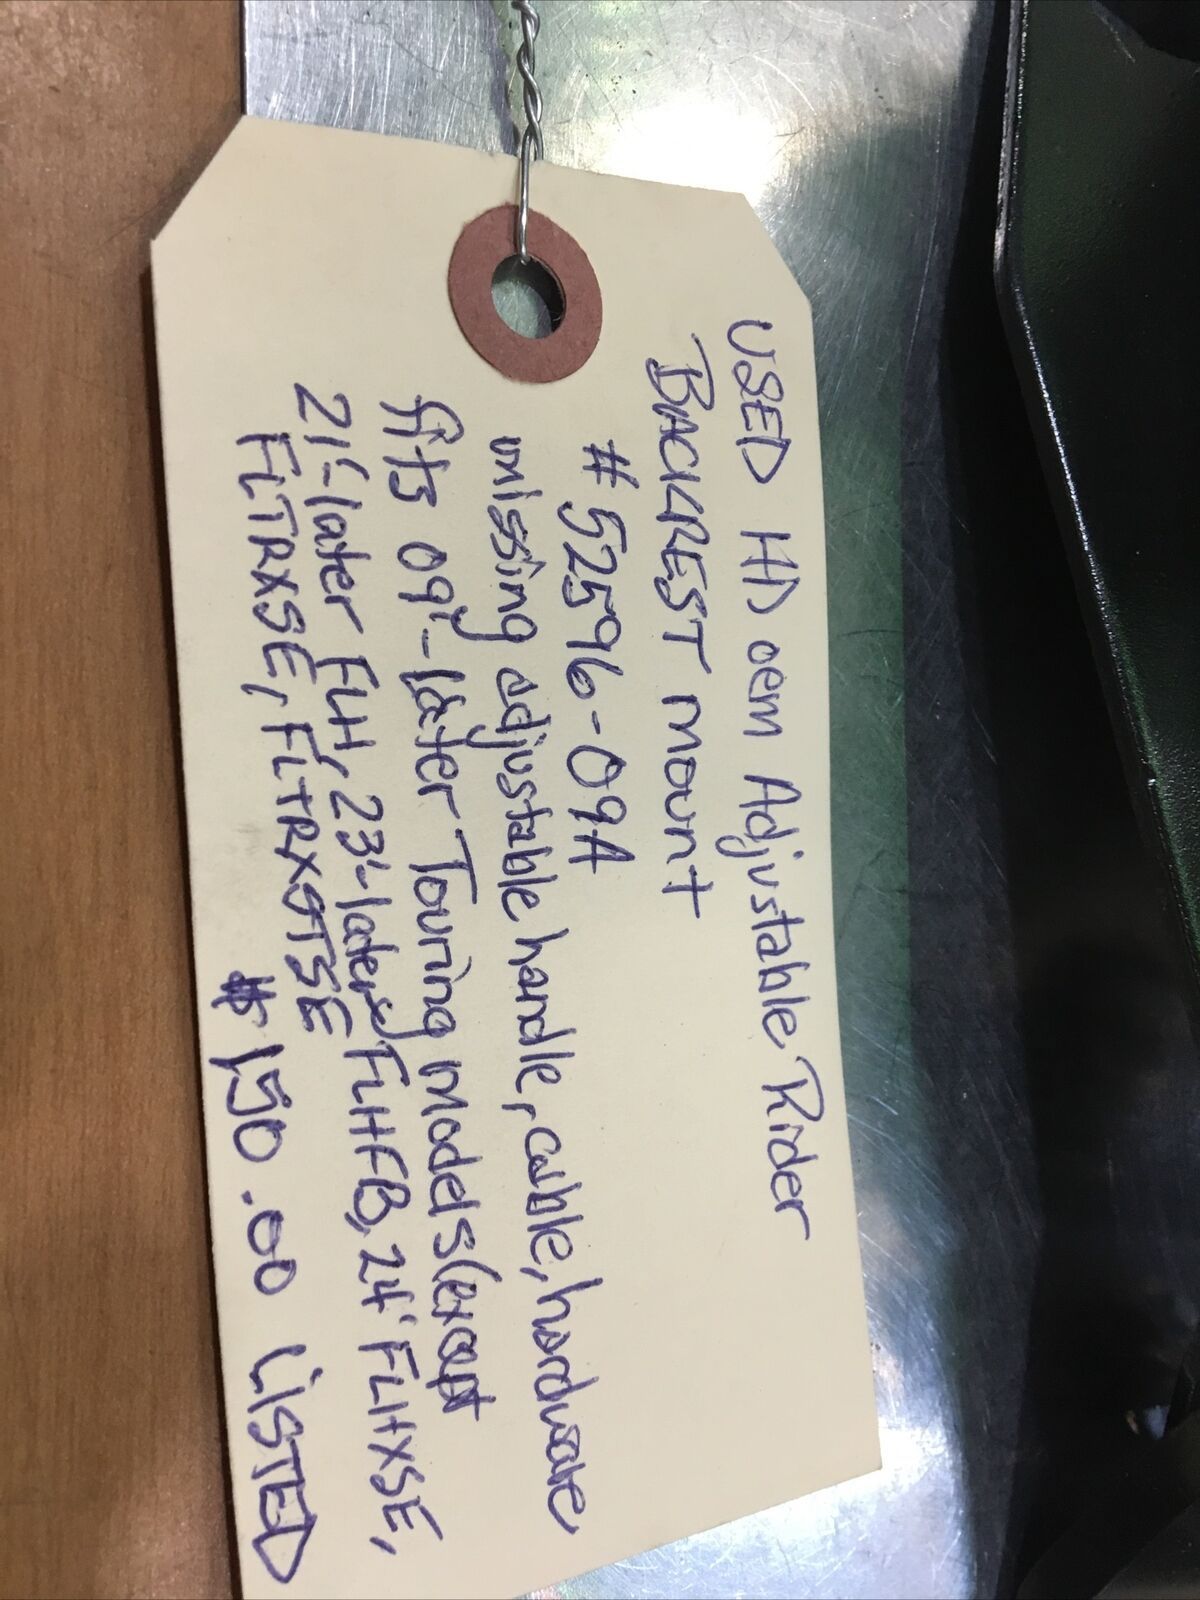 USED HD oem Adjustable Rider
BACKREST mount
# 52596-09A
missing adjustable handle, cable, hardware
fits 09'-later Touring models(except
21'-later FLH, 23'-later FLHFB, 24' FLHXSE,
FLTRXSE, FLTRXSTSE
$150.00 LISTED